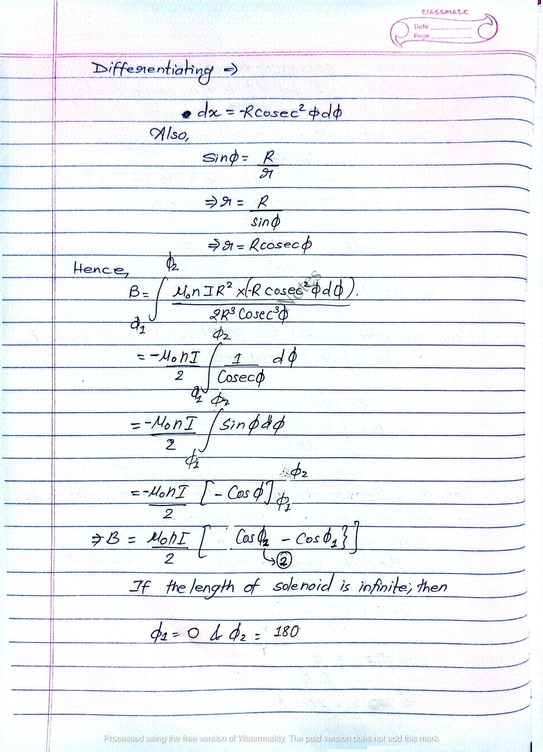 CLASSMATE
Date
Page
Differentiating ⇒
• dx = -R cosec² φ dφ
Also,
sin φ = R/r
⇒ r = R/sin φ
⇒ r = R cosec φ
Hence,
B = ∫_{φ₁}^{φ₂} μ₀ n I R² × (-R cosec² φ dφ). / 2R³ Cosec³ φ
= -μ₀ n I/2 ∫_{φ₁}^{φ₂} 1/Cosec φ dφ
= -μ₀ n I/2 ∫_{φ₁}^{φ₂} Sin φ dφ
= -μ₀ n I/2 [- Cos φ]_{φ₁}^{φ₂}
⇒ B = μ₀ n I/2 [ Cos φ₂ - Cos φ₁ } ]
→ ②
If the length of solenoid is infinite; then
φ₁ = 0 & φ₂ = 180
Notes
Processed using the free version of Watermarkly. The paid version does not add this mark.